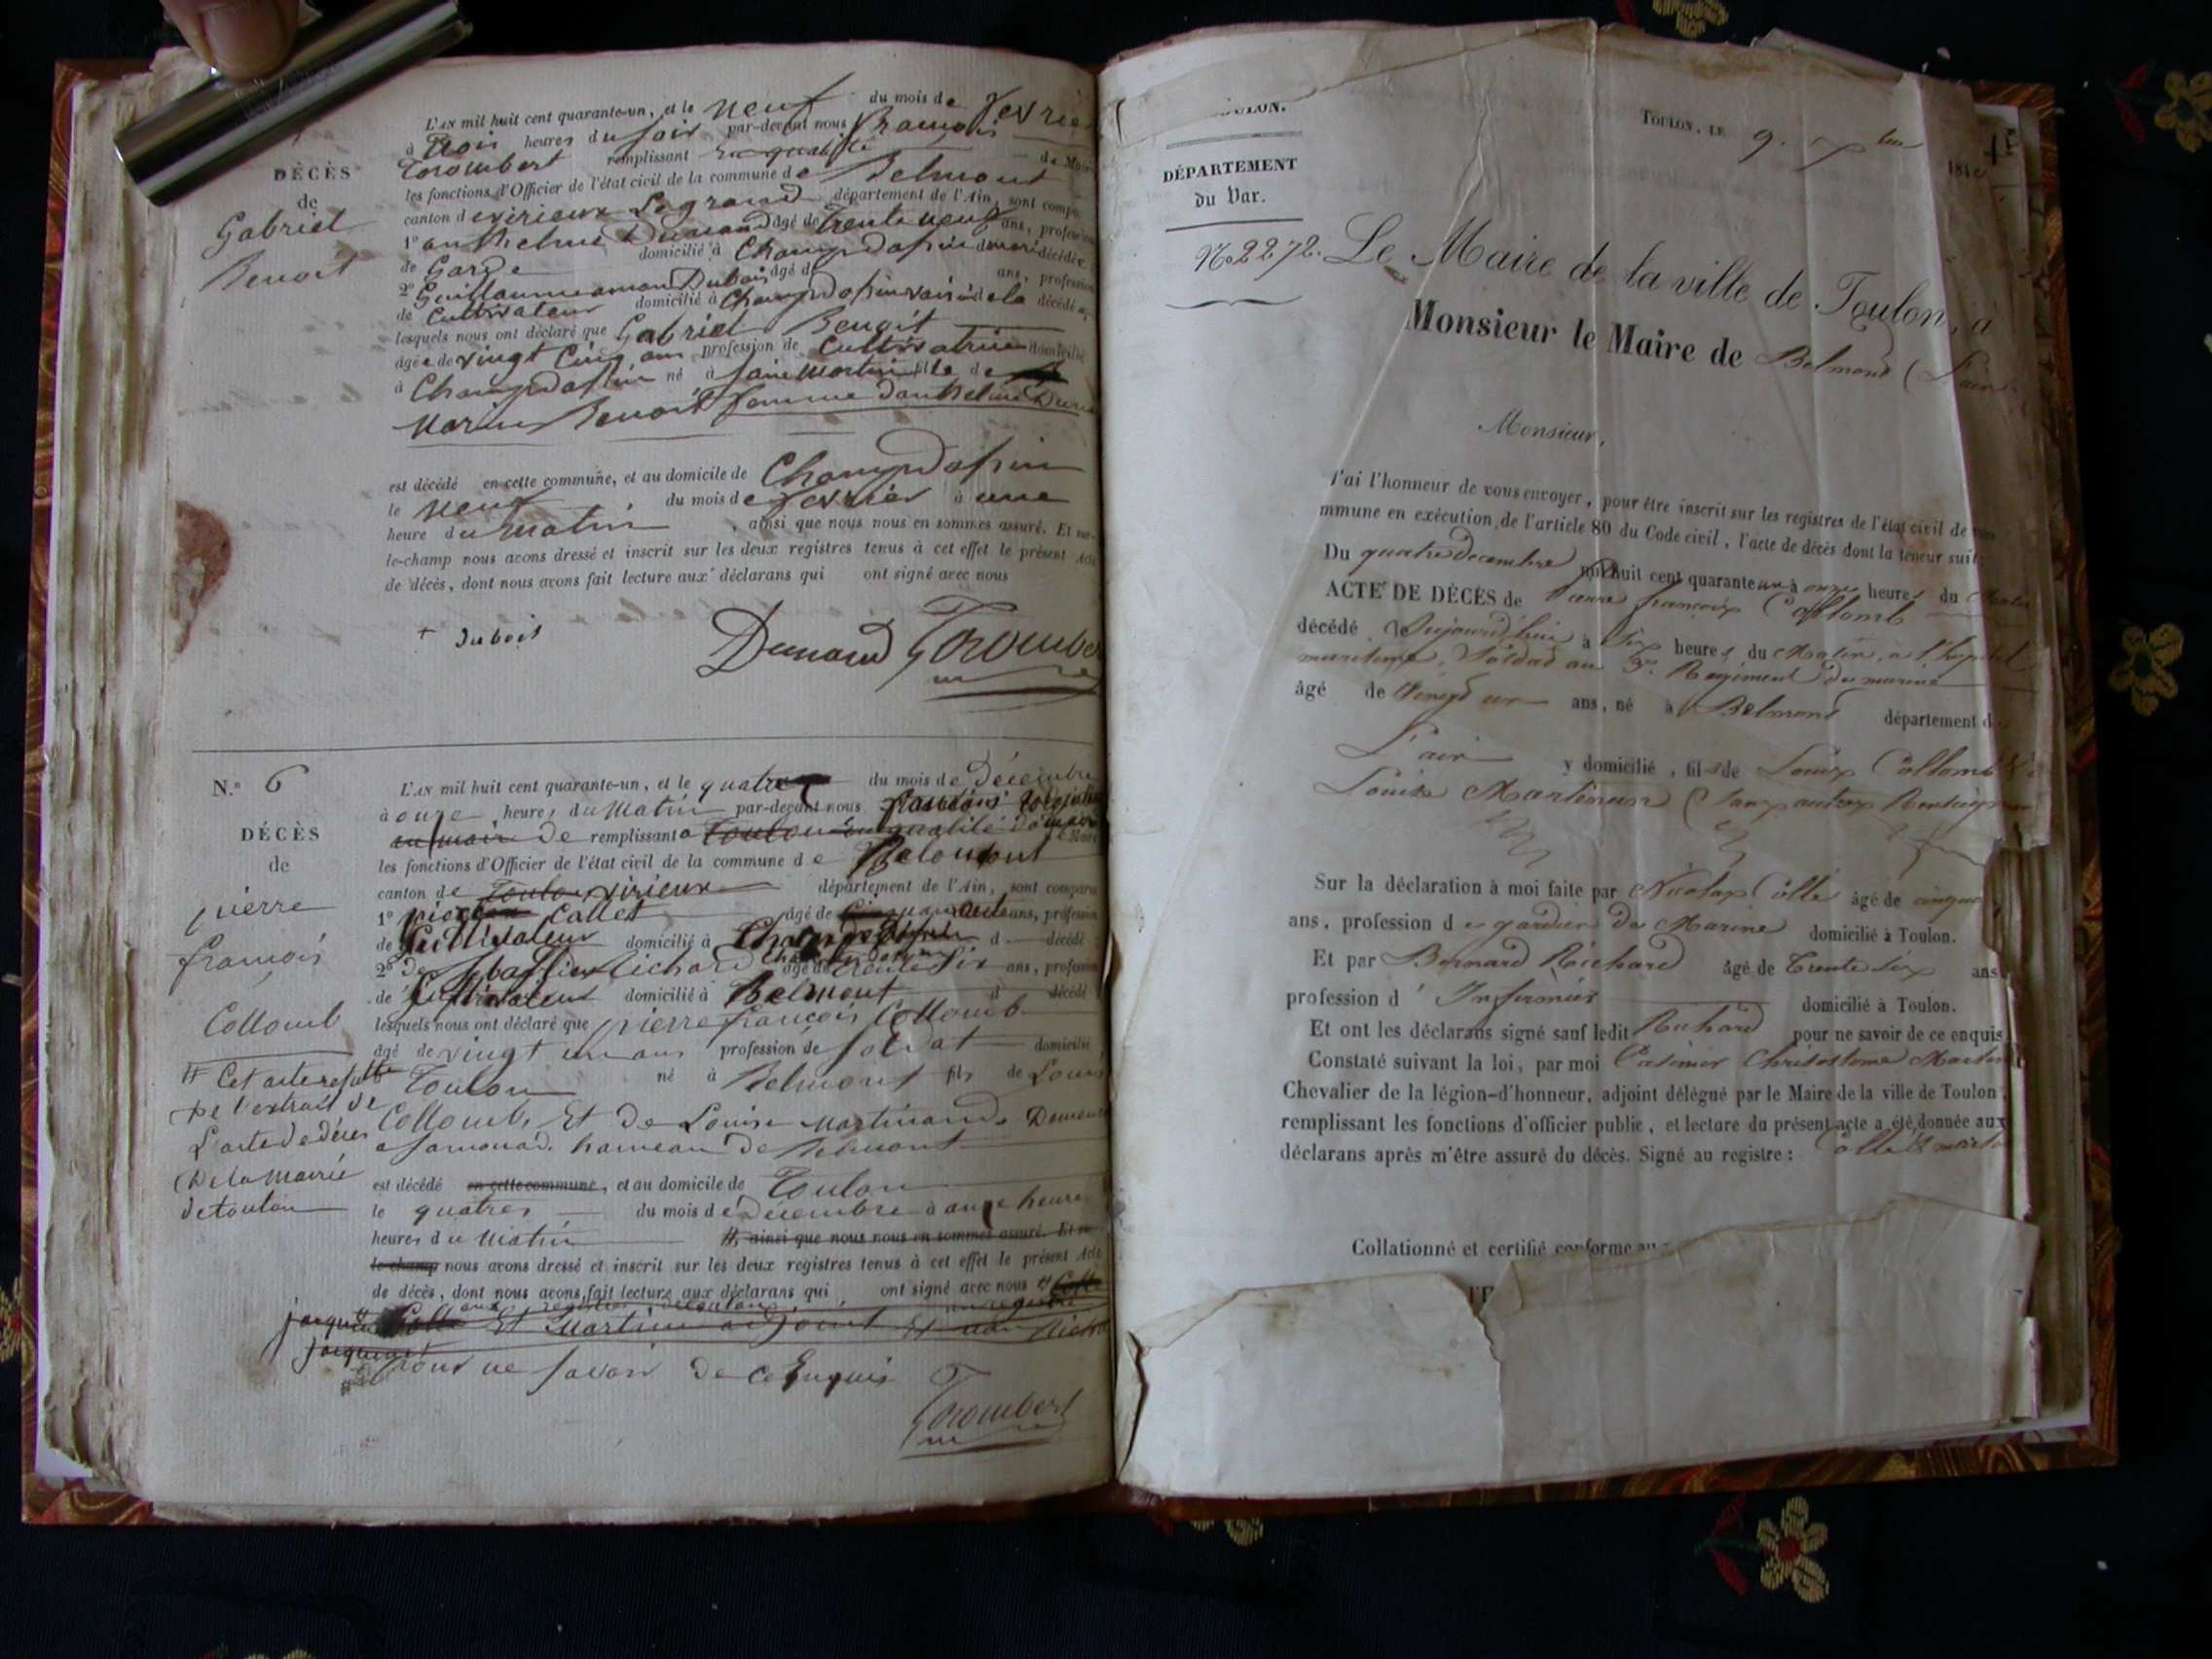 DÉCÈS
de
Gabriel
Benoit
L'AN mil huit cent quarante-un, et le neuf du mois de fevrier
à trois heures du soir par-devant nous françois
Trombert remplissant en qualité de Maire
les fonctions d'Officier de l'état civil de la commune de Belmont
canton de virieux Legrand département de l'Ain, sont compa
1° anthelme Dunand âgé de trente neuf ans, profession
de Garde domicilié à Champdossin décédée
2° Guillaume Dubois âgé de ans, profession
de Cultivateur domicilié à Champdossin voisin de la décédée
lesquels nous ont déclaré que Gabriel Benoit
âgée de vingt Cinq ans profession de Cultivatrice domicilié
à Champdossin né à saint Martin fille de
Marin Benoit femme d'anthelme Duna
est décédé en cette commune, et au domicile de Champdossin
le neuf du mois de fevrier à une
heure du matin, ainsi que nous nous en sommes assuré. Et sur-
le-champ nous avons dressé et inscrit sur les deux registres tenus à cet effet le présent Acte
de décès, dont nous avons fait lecture aux déclarans qui ont signé avec nous
+ Dubois Dunand Trombert
N.° 6
DÉCÈS
de
pierre
françois
Collomb
# Cet acte
De l'extrait de
L'acte de décès
De la Mairie
de toulon
L'AN mil huit cent quarante-un, et le quatre du mois de Décembre
à onze heures du Matin par-devant nous françois
de remplissant en qualité de maire
les fonctions d'Officier de l'état civil de la commune de Belmont
canton de Toulon virieux département de l'Ain, sont compara
1° Collet âgé de ans, profession
de Cultivateur domicilié à d décédé
2° Richard âgé de trente six ans, profession
de Cultivateur domicilié à Belmont d décédé
lesquels nous ont déclaré que pierre françois Collomb
âgé de vingt un ans profession de soldat domicilié
Toulon né à Belmont fils de Louis
Collomb, Et de Louise Martinand
hameau de Belmont
est décédé en cette commune, et au domicile de Toulon
le quatres du mois de Décembre à onze heure
heures du Matin #, ainsi que nous nous en sommes assuré. Et sur
le-champ nous avons dressé et inscrit sur les deux registres tenus à cet effet le présent Acte
de décès, dont nous avons fait lecture aux déclarans qui ont signé avec nous
Et Martin adjoint
pour ne savoir de ce Enquis
Trombert
TOULON.
DÉPARTEMENT
du Var.
N° 2272.
TOULON, LE 9. Xbre 184
Le Maire de la ville de Toulon, à
Monsieur le Maire de Belmond (L'ain
Monsieur,
J'ai l'honneur de vous envoyer, pour être inscrit sur les registres de l'état civil de
mmune en exécution de l'article 80 du Code civil, l'acte de décès dont la teneur suit
Du quatre Decembre mil huit cent quarante un à onze heures du Matin
ACTE DE DÉCÈS de Pierre françois Collomb
décédé Aujourd'hui à Six heures du Matin, à l'hopital
maritime, Soldat au 3e. Régiment de marine
âgé de Vingt un ans, né à Belmond département d
L'ain y domicilié, fils de Louis Collomb &
Louise Martinand (Sans autres Renseignem
Sur la déclaration à moi faite par Nicolas Collé âgé de cinqua
ans, profession de gardien de Marine domicilié à Toulon.
Et par Bernard Richard âgé de Trente Six ans
profession d'Infirmier domicilié à Toulon.
Et ont les déclarans signé sauf ledit Richard pour ne savoir de ce enquis
Constaté suivant la loi, par moi Casimir Chrisostome Martin
Chevalier de la légion-d'honneur, adjoint délégué par le Maire de la ville de Toulon
remplissant les fonctions d'officier public, et lecture du présent acte a été donnée aux
déclarans après m'être assuré du décès. Signé au registre : Collé & Martin
Collationné et certifié conforme au